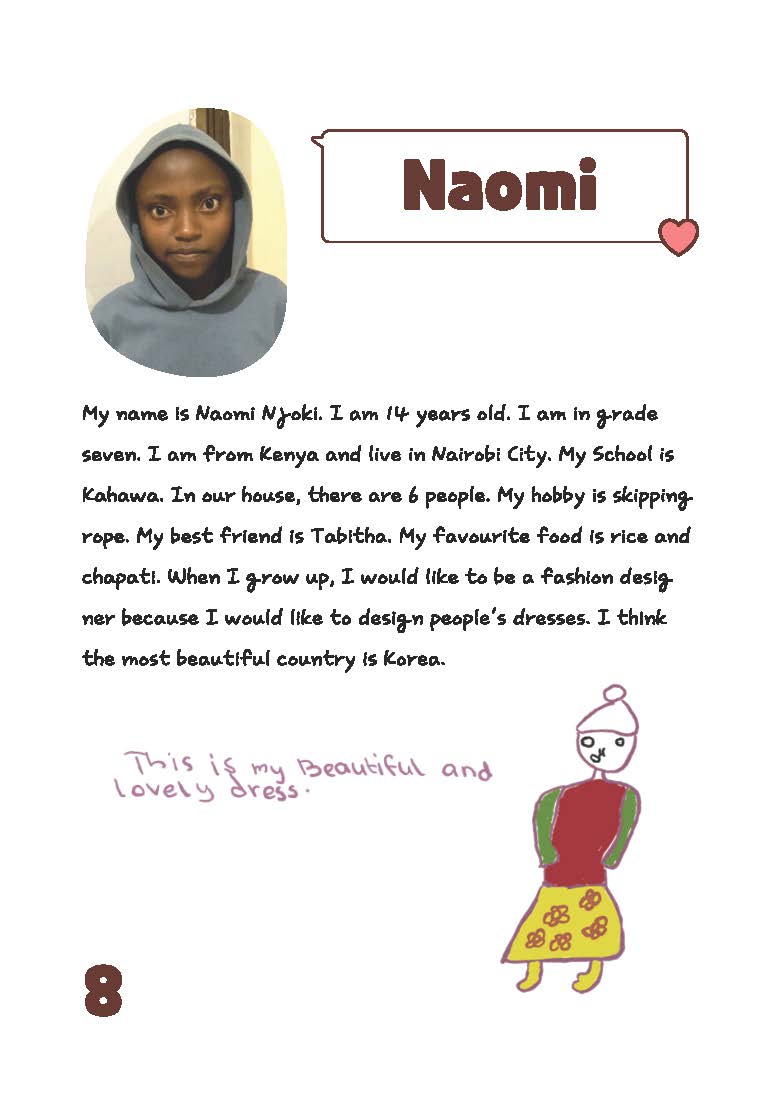 Naomi
My name is Naomi Njoki. I am 14 years old. I am in grade
seven. I am from Kenya and live in Nairobi City. My School is
Kahawa. In our house, there are 6 people. My hobby is skipping
rope. My best friend is Tabitha. My favourite food is rice and
chapati. When I grow up, I would like to be a fashion desig
ner because I would like to design people's dresses. I think
the most beautiful country is Korea.
This is my Beautiful and
lovely dress.
8